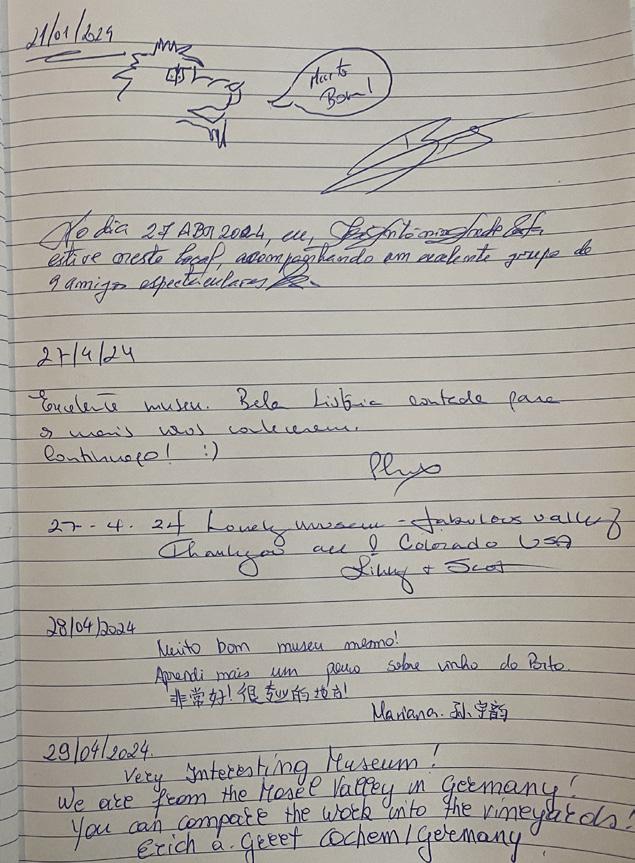 21/01/2024
Muito
Bom!
No dia 27 ABR 2024, eu,
estive neste local, acompanhando um excelente grupo de
9 amigos espectaculares
27/4/24
Excelente museu. Bela história contada para
os mais novos conhecerem.
Continuação! :)
27-4.24 Lovely museum - fabulous valley
Thankyou all! Colorado USA
28/04/2024
Muito bom museu mesmo!
Aprendi mais um pouco sobre vinho do Porto.
非常好!很专业的地方!
Mariana. 孙宇韵
29/04/2024.
Very Interesting Museum!
We are from the Mosel Valley in Germany!
You can compare the work into the vineyards!
Erich a. Greet Cochem/Germany